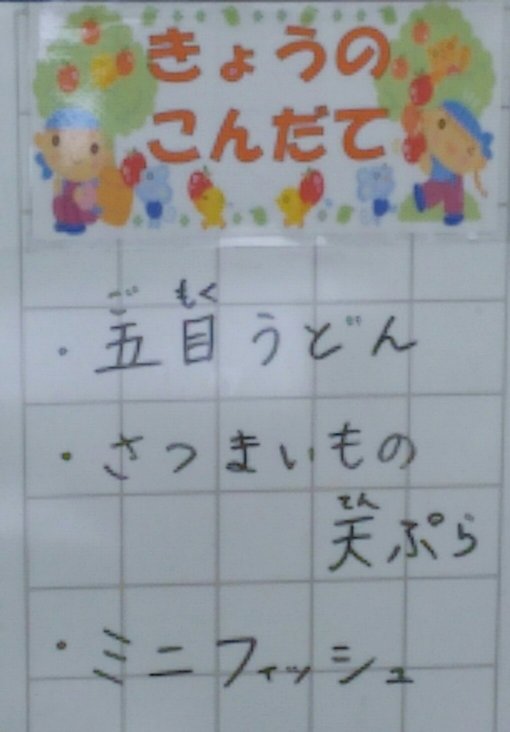 きょうの
こんだて
ごもく
・五目うどん
・さつまいもの
てん
天ぷら
・ミニフィッシュ